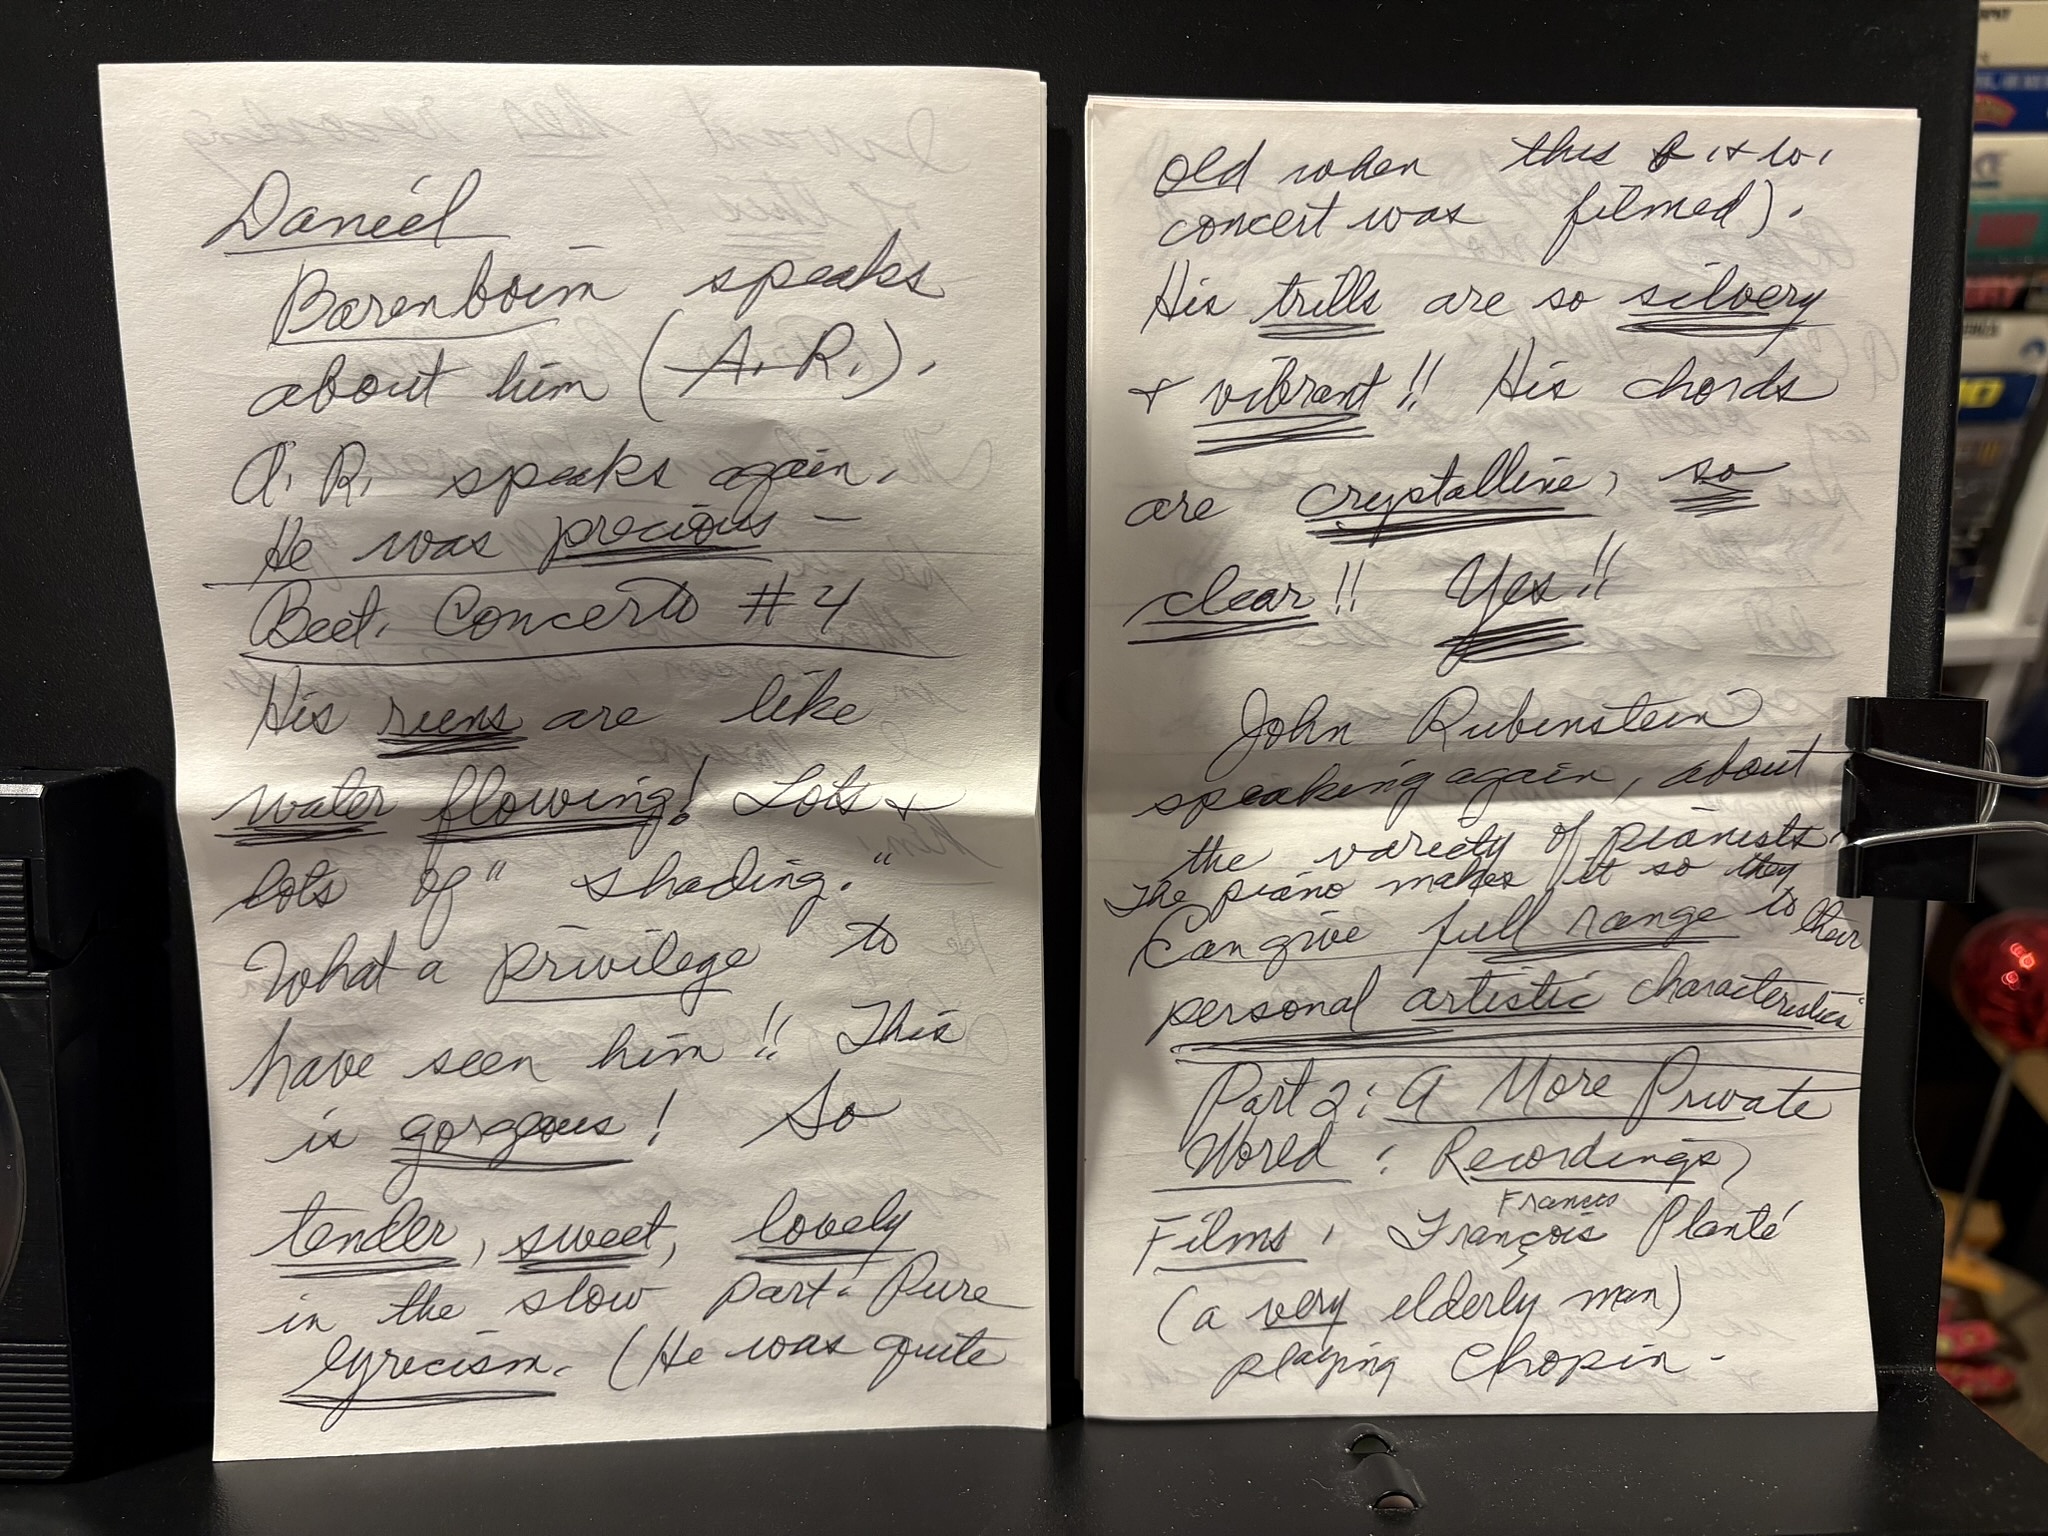 Daniel
Barenboim speaks
about him (A. R.).
A. R. speaks again.
He was precious —
Beet. Concerto #4
His runs are like
water flowing! Lots &
lots of "shading."
What a privilege to
have seen him!! This
is gorgeous! So
tender, sweet, lovely
in the slow part. Pure
lyricism. (He was quite
old when this b. & w.
concert was filmed).
His trills are so silvery
& vibrant!! His chords
are crystalline, so
clear!! Yes!!
John Rubinstein
speaking again, about
the variety of pianists.
The piano makes it so they
can give full range to their
personal artistic characteristics
Part 2: A More Private
World: Recordings,
Films. François Planté
Francis
(a very elderly man)
playing Chopin -